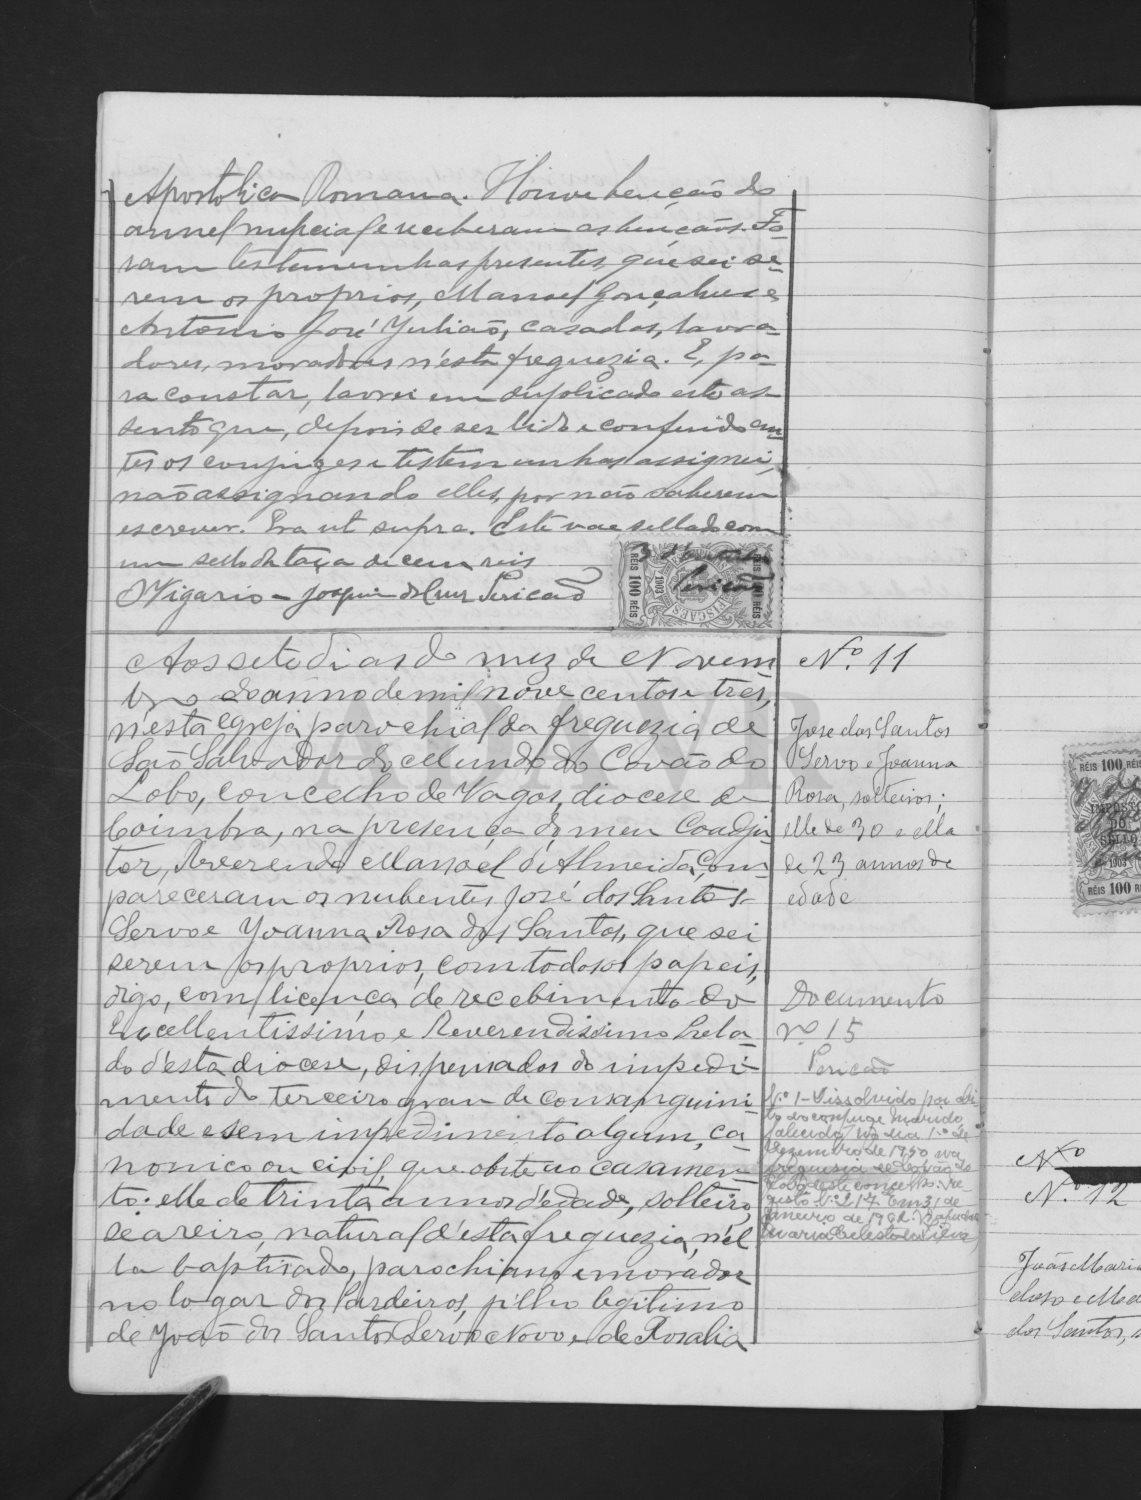 Apostolica Romana. Houve bençaõ do
annel nupcial e receberam as bençaõs. Fo-
ram testemunhas presentes, que sei se-
rem os proprios, Manoel Gonçalves e
Antonio José Juliaõ, casados, lavra-
dores, moradores n'esta freguezia. E, pa-
ra constar, lavrei em duplicado este as-
sento que, depois de ser lido e conferido an-
tes os conjuges e testemunhas assignei,
naõ assignando elles, por naõ saberem
escrever. Era ut supra. Este vae sellado com
um sello da taxa de cem reis
O Vigario – Joaquim da Cruz Pericaõ
RÉIS 100 RÉIS
1903
FISCAES
Pericaõ
Aos sete dias do mez de Novem-
bro do anno de mil nove centos e tres,
n'esta egreja parochial da freguezia de
Saõ Salvador do Mundo do Covaõ do
Lobo, concelho de Vagos, diocese de
Coimbra, na presença do meu Coadju-
tor, Reverendo Manoel d'Almeida, com-
pareceram os nubentes José dos Santos
Servo e Joanna Rosa dos Santos, que sei
serem os proprios, com todos os papeis,
digo, com licença de recebimento do
Excellentissimo e Reverendissimo Prela-
do d'esta diocese, dispensados do impedi-
mento do terceiro grau de consanguini-
dade e sem impedimento algum, ca-
nonico ou civil, que obste ao casamen-
to: elle de trinta annos d'edade, solteiro,
seareiro, natural d'esta freguezia, n'el-
la baptisado, parochiano e morador
no logar dos Cardeiros, filho legitimo
de Joaõ dos Santos Servo Novo e de Rosalia
Nº. 11
Jose dos Santos
Servo e Joanna
Rosa, solteiros;
elle de 30 e ella
de 23 annos de
edade
Documento
nº 15
Pericaõ
N.º 1 – Dissolvido por óbi-
to do conjuge marido,
falecido no dia 1.º de
Dezembro de 1950 na
freguesia de Covão do
Lobo deste concelho. Re-
gisto N.º 217. Em 31 de
Janeiro de
Maria Celeste da Silva
ADAVR
RÉIS 100 RÉIS
IMPOSTO
DO
SELLO
1903
RÉIS 100 R
Nº
N.º 12
João Maria
dos Santos,